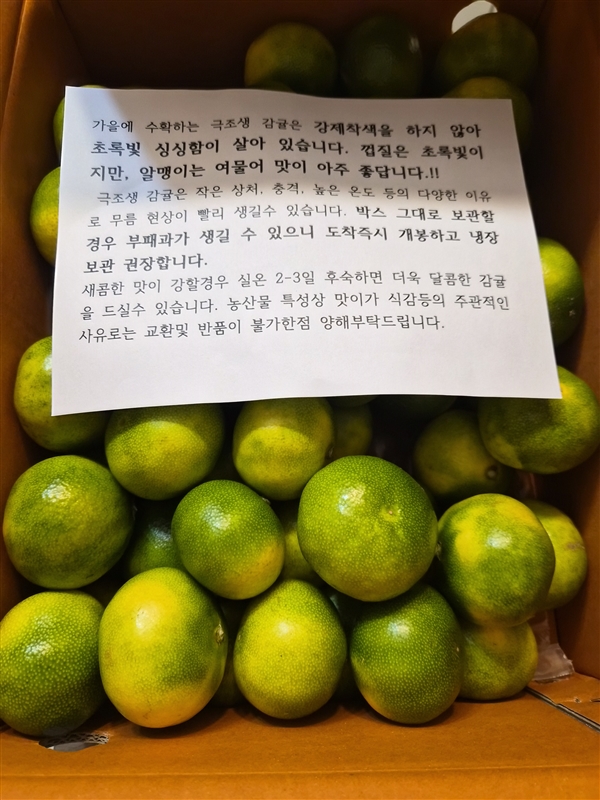 가을에 수확하는 극조생 감귤은 강제착색을 하지 않아
초록빛 싱싱함이 살아 있습니다. 껍질은 초록빛이
지만, 알맹이는 여물어 맛이 아주 좋답니다.!!
극조생 감귤은 작은 상처, 충격, 높은 온도 등의 다양한 이유
로 무름 현상이 빨리 생길수 있습니다. 박스 그대로 보관할
경우 부패과가 생길 수 있으니 도착즉시 개봉하고 냉장
보관 권장합니다.
새콤한 맛이 강할경우 실온 2-3일 후숙하면 더욱 달콤한 감귤
을 드실수 있습니다. 농산물 특성상 맛이가 식감등의 주관적인
사유로는 교환및 반품이 불가한점 양해부탁드립니다.